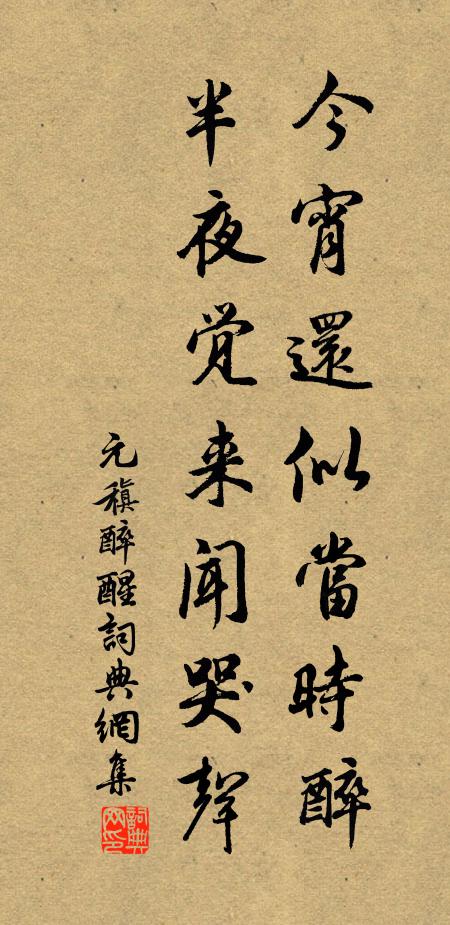 今宵還似當時醉
半夜覚来闻哭聲
元稹醉醒詞典網集
詞典网印